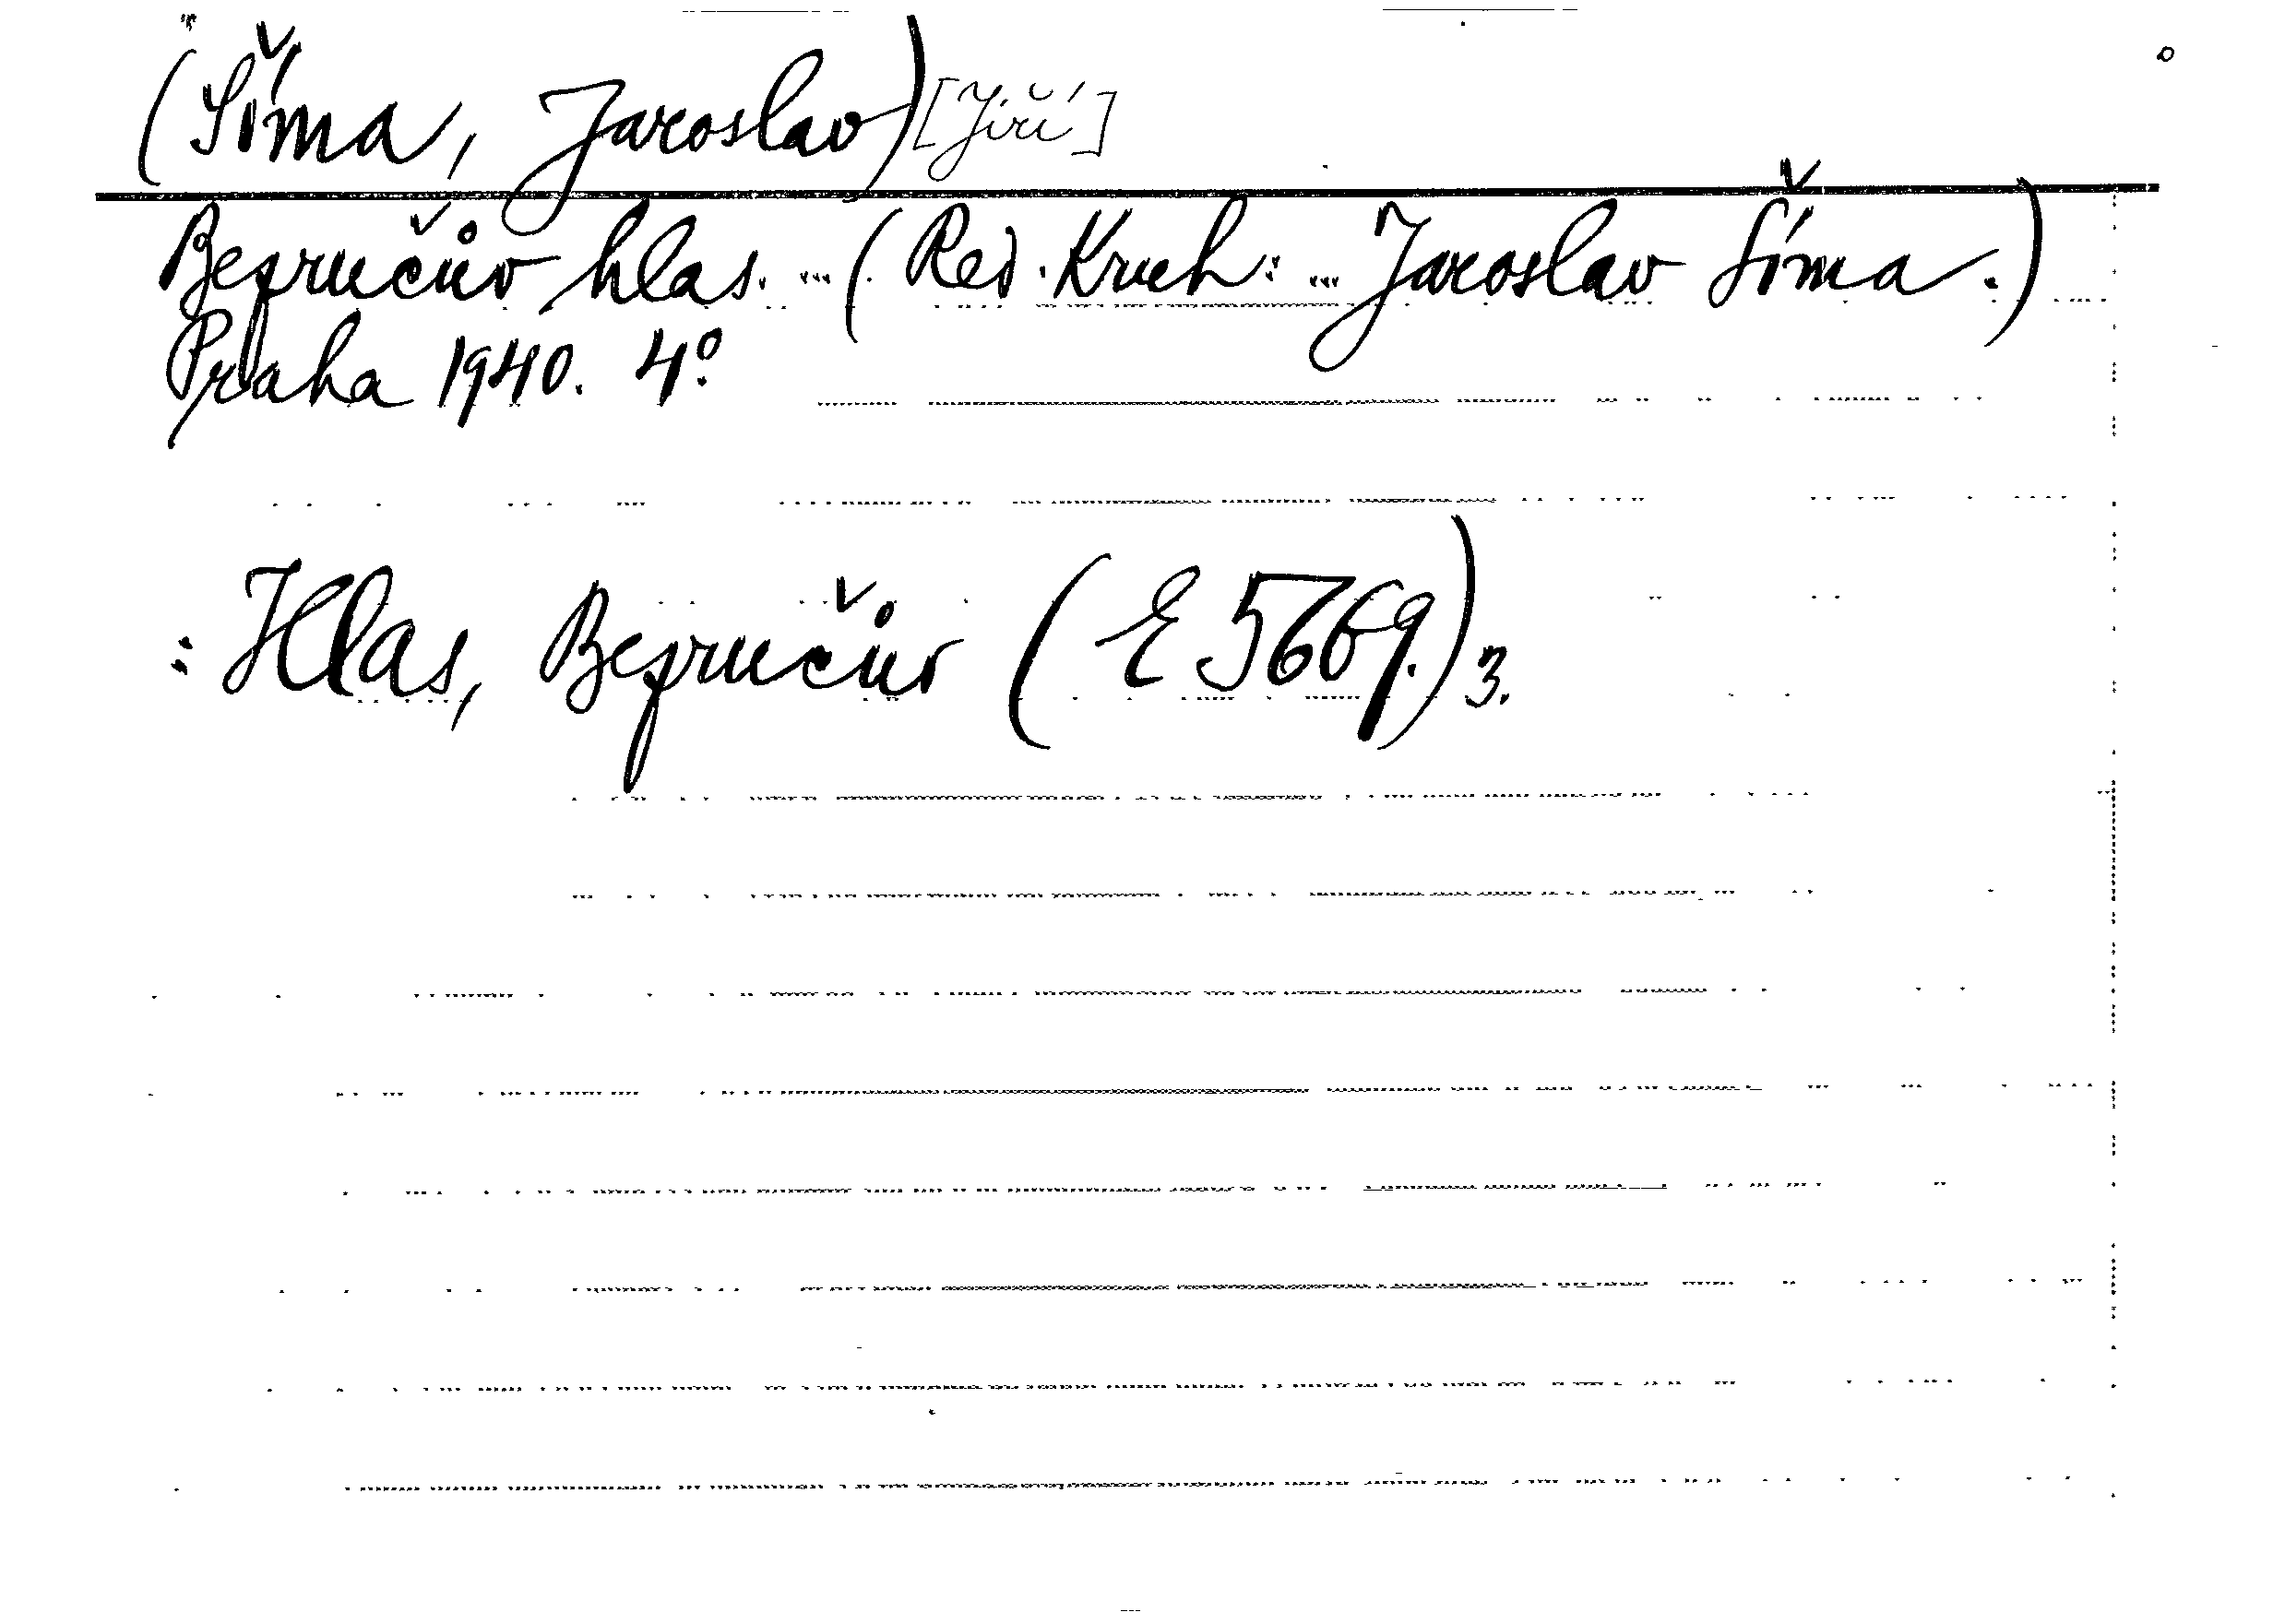 (Šíma, Jaroslav) [Jiří]
Bezručův hlas. ... (Red. Kruh: ... Jaroslav Šíma.)
Praha 1940. 4°.
: Hlas, Bezručův (E 5669.) 3.